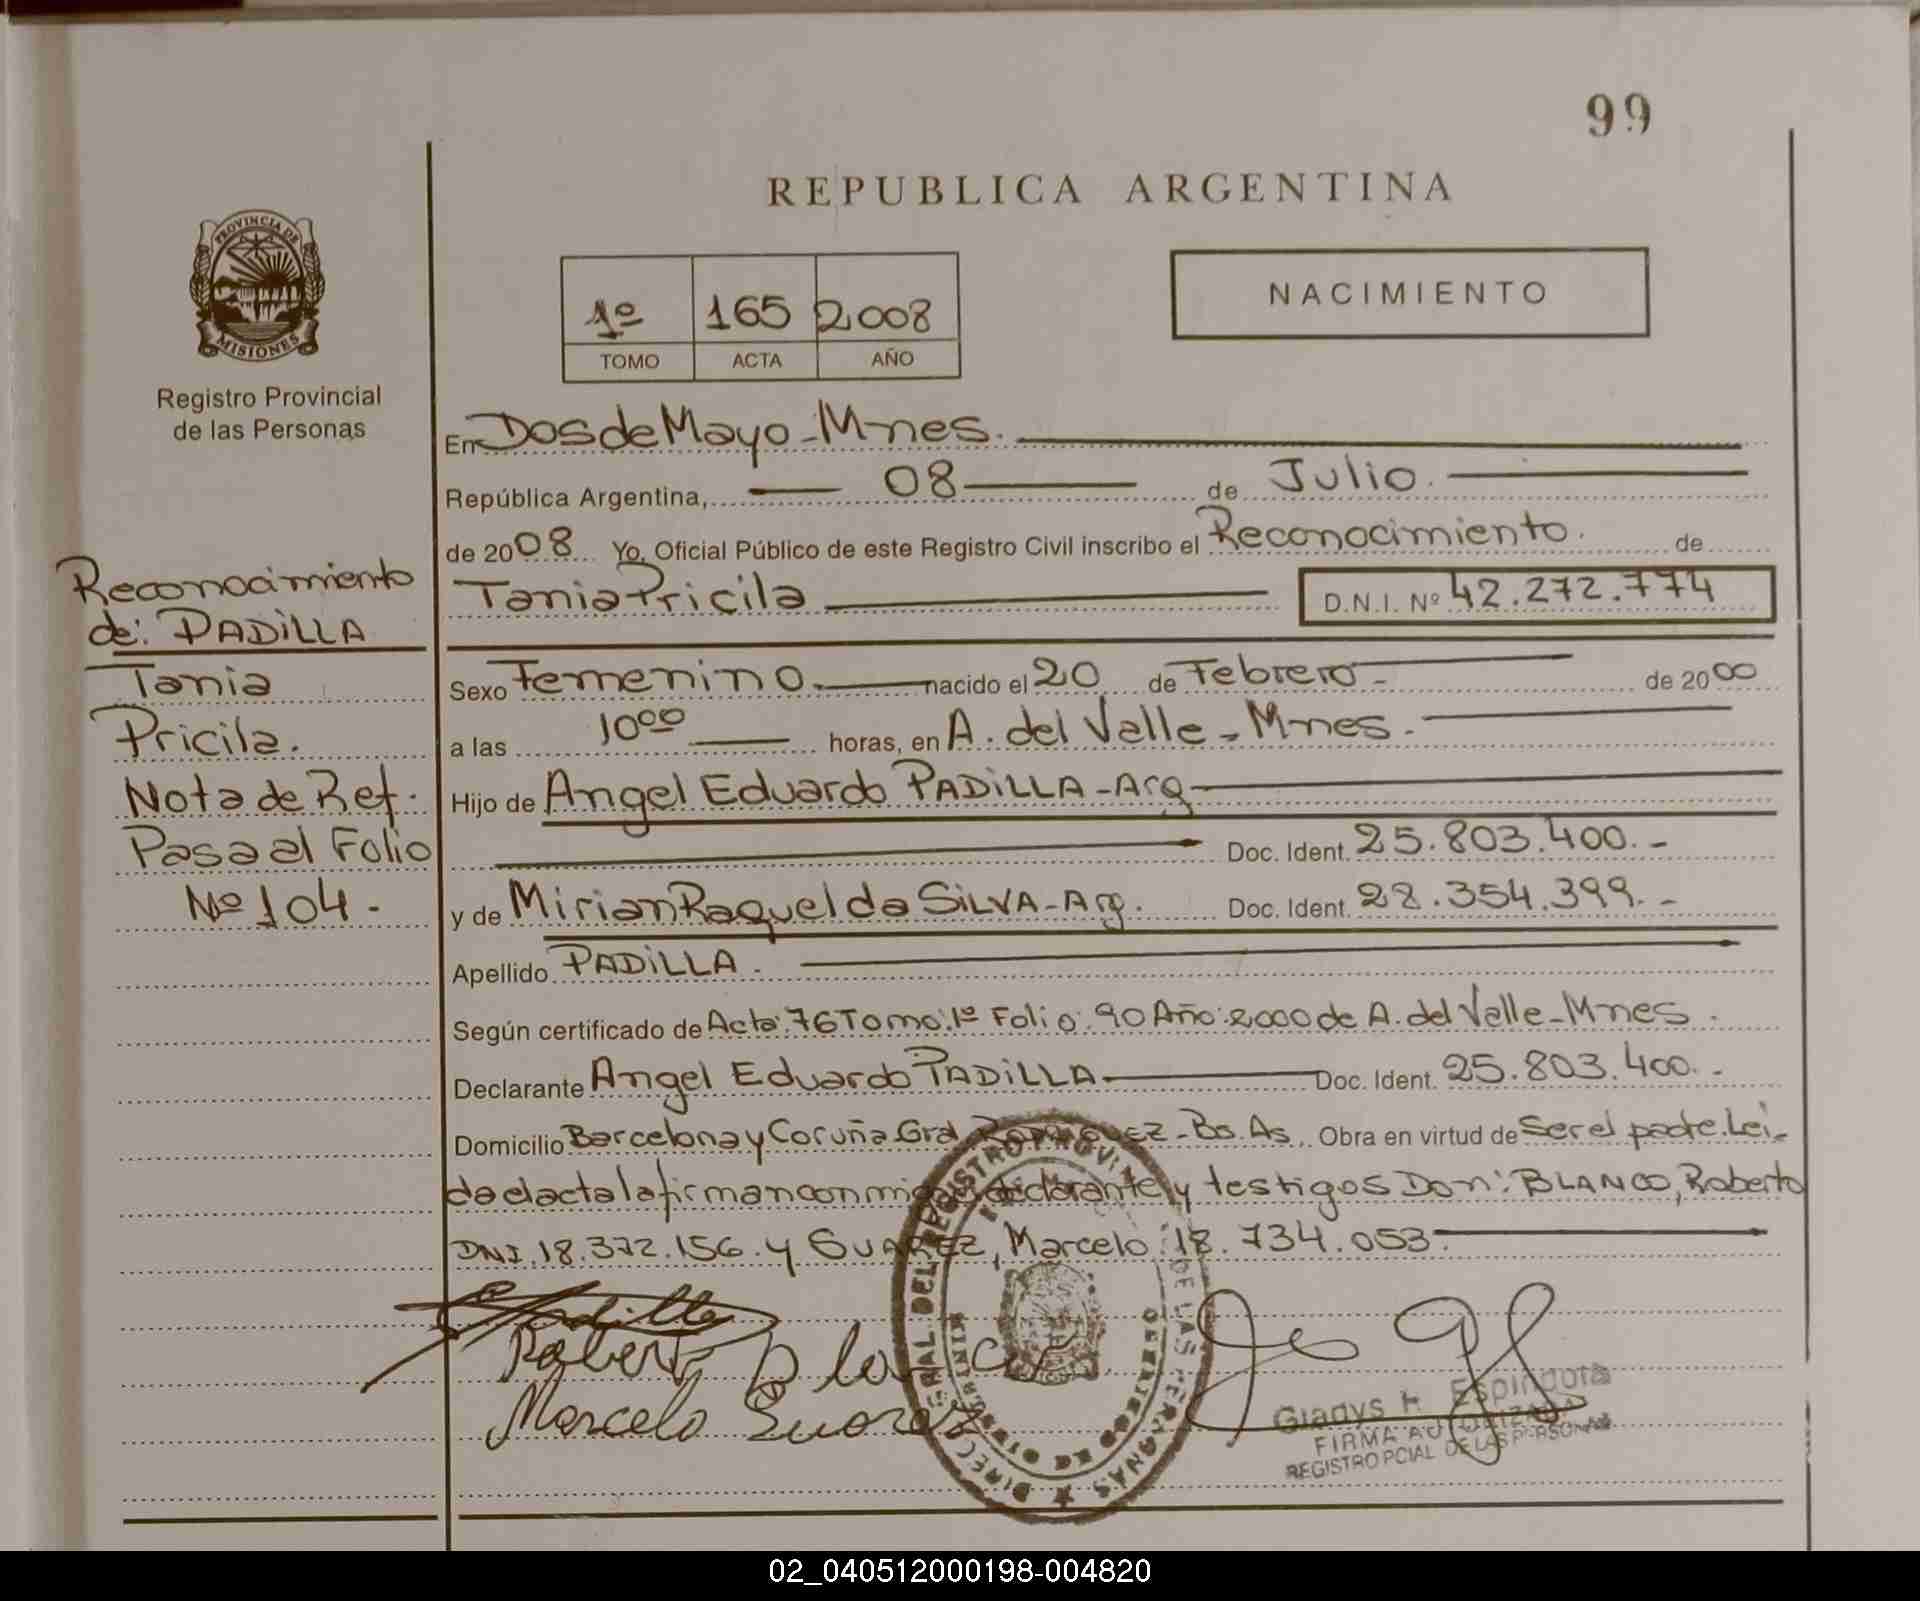 99
REPUBLICA ARGENTINA
PROVINCIA DE
MISIONES
Registro Provincial
de las Personas
1º 165 2008
TOMO ACTA AÑO
NACIMIENTO
En Dos de Mayo - Mnes.
República Argentina, 08 de Julio.
de 2008 Yo, Oficial Público de este Registro Civil inscribo el Reconocimiento. de
Tania Pricila D.N.I. Nº 42.272.774
Reconocimiento
de: PADILLA
Tania
Pricila.
Nota de Ref.
Pasa al Folio
Nº 104.-
Sexo Femenino nacido el 20 de Febrero - de 2000
a las 10⁰⁰ horas, en A. del Valle - Mnes.
Hijo de Angel Eduardo PADILLA - Arg
Doc. Ident. 25.803.400.-
y de Mirian Raquel da SILVA - Arg. Doc. Ident. 28.354.399.-
Apellido PADILLA.
Según certificado de Acta: 76 Tomo: 1º Folio: 90 Año: 2000 de A. del Valle - Mnes.
Declarante Angel Eduardo PADILLA Doc. Ident. 25.803.400.-
Domicilio Barcelona y Coruña Gral RODRIGUEZ - Bs. As. Obra en virtud de Ser el padre. Lei-
da el acta la firman conmigo declarante y testigos Don: BLANCO, Roberto
DNI. 18.372.156. y SUAREZ, Marcelo. 18.734.053.
Padilla
Roberto Blanco
Marcelo Suarez
DIRECCION GENERAL DEL REGISTRO PROVINCIAL DE LAS PERSONAS
MINISTERIO DE GOBIERNO
Gladys H. Espindola
FIRMA AUTORIZADA
REGISTRO PCIAL DE LAS PERSONAS
02_040512000198-004820